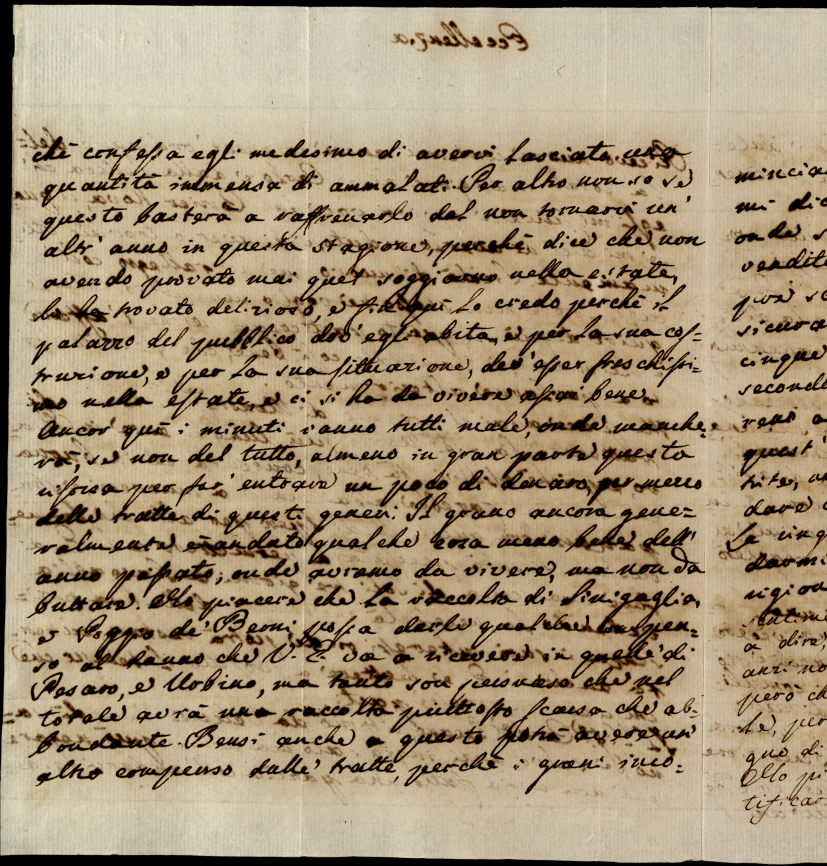 Eccellenza
chè confessa egli medesimo di avervi lasciata una
quantità immensa di ammalati. Per altro non so se
questo basterà a raffrenarlo dal non tornarvi un'
altr' anno in questa stagione, perchè dice che non
avendo provato mai quel soggiorno nella estate,
lo ha trovato delizioso, e fin qui lo credo perchè il
palazzo del pubblico dov' egli abita, e per la sua cos=
truzione, e per la sua situazione, dev' esser freschissi=
mo nella estate, e ci si ha da vivere assai bene.
Ancor quì i minuti vanno tutti male, onde manche=
rà, se non del tutto, almeno in gran parte questa
risorsa per far' entrare un poco di denaro per mezzo
delle tratte di questi generi. Il grano ancora gene=
ralmente è andato qualche cosa meno bene dell'
anno passato, onde avramo da vivere, ma non da
buttare. Ho piacere che la raccolta di Sinigaglia,
e Poggio de' Berni possa darle qualche compen=
so al danno che V. E. va a ricevere in quelle di
Pesaro, e Urbino, ma tanto son persuaso che nel
totale avrà una raccolta piuttosto scarsa che ab=
bondante. Bensì anche a questo potrà avere un'
altro compenso dalle tratte, perchè i grani inco=
mincia
mi dic
onde s
vendit
poi sc
sicura
cinque
seconde
reni a
quest'
trite, u
dare
La ring
darmi
rigion
à dire,
anzi no
però ch
le, per
que di
Ho pi
tificar